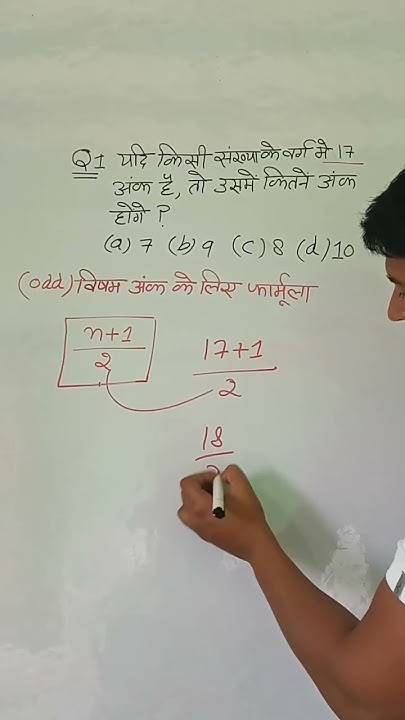 Q1 यदि किसी संख्या के वर्ग मे 17
अंक है, तो उसमें कितने अंक
होगे ?
(a) 7 (b) 9 (c) 8 (d) 10
(odd) विषम अंक के लिए फार्मूला
n+1
2
17+1
2
18
2